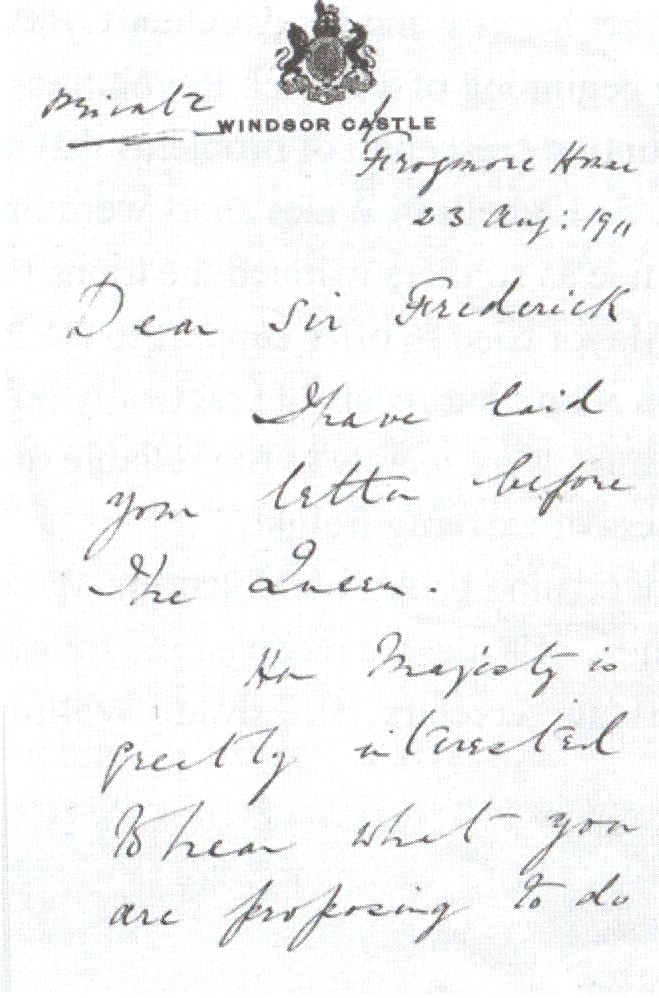 Private
WINDSOR CASTLE
Frogmore House
23 Aug: 1911
Dear Sir Frederick
I have laid
your letter before
The Queen.
Her Majesty is
greatly interested
to hear what you
are proposing to do